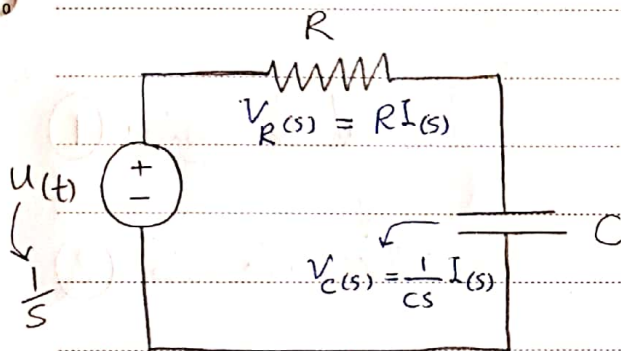 R
V_R(s) = RI(s)
+
−
u(t)
1/s
C
V_C(s) = 1/cs I(s)